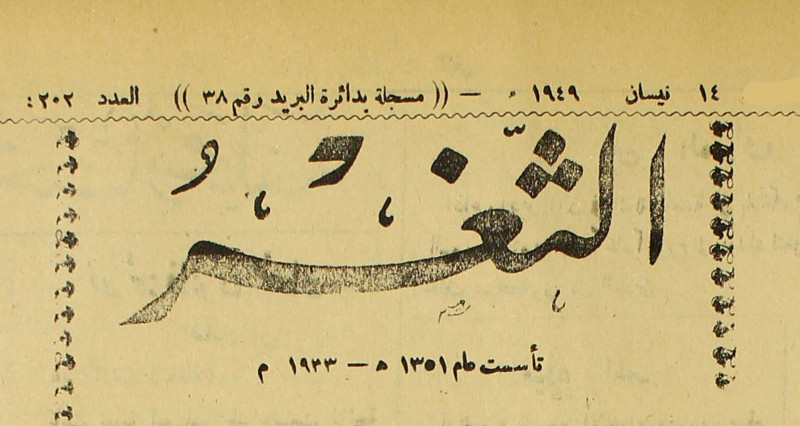 ١٤ نيسان ١٩٤٩ م — (( مسجلة بدائرة البريد وقم ٣٨ )) العدد ٢٠٢ :
الثَّغْرُ
تأسست عام ١٣٥١ ه — ١٩٣٣ م